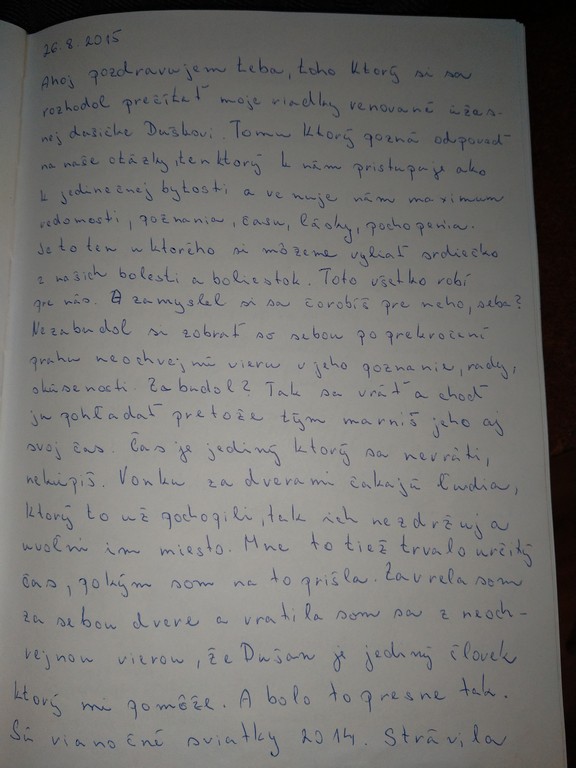 26.8.2015
Ahoj pozdravujem teba, toho ktorý si sa
rozhodol prečítať moje riadky venované úžas-
nej dušičke Duškovi. Tomu ktorý pozná odpoveď
na naše otázky, ten ktorý k nám pristupuje ako
k jedinečnej bytosti a venuje nám maximum
vedomosti, poznania, času, lásky, pochopenia.
Je to ten u ktorého si môžeme vyliať srdiečko
z našich bolesti a boliestok. Toto všetko robí
pre nás. A zamyslel si sa čo robíš pre neho, seba?
Nezabudol si zobrať so sebou po prekročení
prahu neochvejnú vieru v jeho poznanie, rady,
skúsenosti. Zabudol? Tak sa vráť a choď
ju pohľadať pretože tým marníš jeho aj
svoj čas. Čas je jediný ktorý sa nevráti,
nekúpiš. Vonku za dverami čakajú ľudia,
ktorý to už pochopili, tak ich nezdržuj a
uvoľni im miesto. Mne to tiež trvalo určitý
čas, pokým som na to prišla. Zavrela som
za sebou dvere a vrátila som sa z neoch-
vejnou vierou, že Dušan je jediný človek
ktorý mi pomôže. A bolo to presne tak.
Sú vianočné sviatky 2014. Strávila